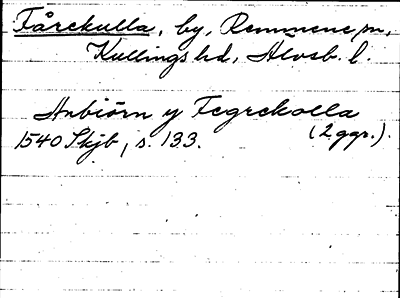 Fårekulla, by, Remmene sn,
Kullings hd, Älvsb. l.
Anbiörn y Fegrekolla
(2 ggr.).
1540 Skjb, s. 133.